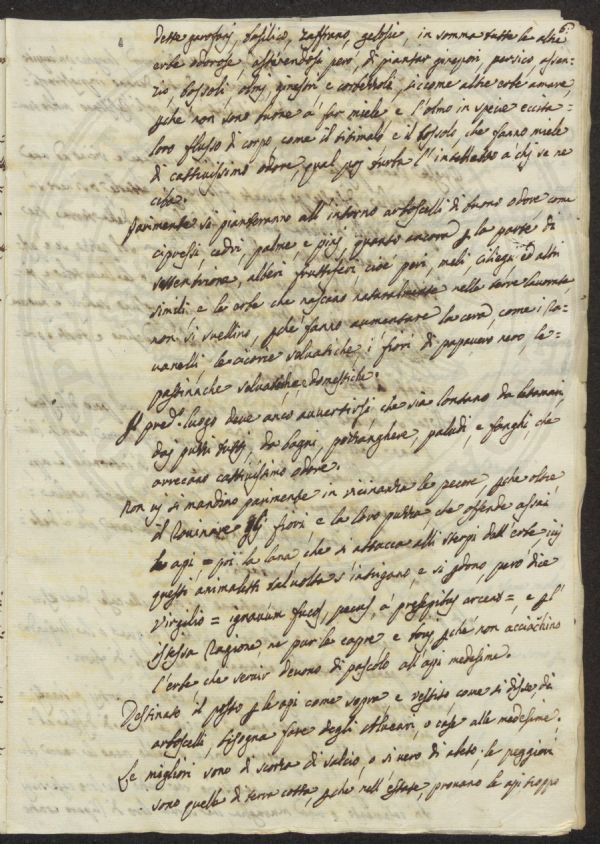 6
dette garofani, basilico, zaffrano, gelosie, in somma tutte le altre
erbe odorose astenendosi però, di piantar piregioni, persico, assen=
zio bossoli, olmi, ginestri e corbezzoli, siccome altre erbe amare,
pche non sono buone à far miele e l'olmo in specie eccita=
loro flusso di corpo, come il titimalo e il bossolo, che fanno miele
di cattivissimo odore, qual poi turba l'intelletto à chi se ne
ciba.
Parimente si pianteranno all'intorno arboscelli di buono odore come
cipressi, cedri, palme, e pini, quanto ancora p la parte di
settentrione, alberi fruttiferi, cioè peri, meli, ciliegi ed altri
simili e le erbe che nascono naturalmente nelle terre lavorate
non si svellino, pche fanno aumentare la cera, come i ra=
vanelli, le cicorie salvatiche, i fiori di papavero nero, le=
pastinache salvatiche, e domestiche.
Il pred.º luogo deve anco avvertirsi che sia lontano da letamari,
dai putti tutti, da bagni, pozzanghere, paludi, e fanghi, che
arrecano cattivissimo odore.
Non vi si mandino parimente in vicinanza le pecore, pche oltre
il rovinare gli fiori, e la loro puzza che offende assai
le api, = poi la lana che si attacca alli sterpi dall'erbe ivi
questi animaletti talvolta s'intrigano, e si pdono, però dice
Virgilio = ignavum fucos, pecus, a presepibus arcens =, e p l'
istessa ragione, ne pur le capre e bovi pche non acciachino
l'erbe che servir devono di pascolo all'api medesime.
Destinato il posto p le api come sopra, e vestito come si disse di
arboscelli, bisogna fare degli alveari, o case alle medesime.
Le migliori sono di scorza di salcio, o si vero di abeto. le peggiori
sono quelle di terra cotta, pche nell'estate, provano le api troppo